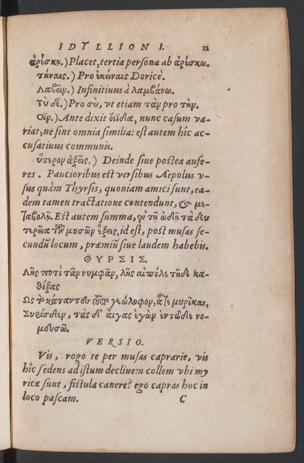 IDYLLION I. 12
ἀρέσκῃ.) Placet, tertia persona ab ἀρέσκω.
τύναις.) Pro ἐκείναις Dorice.
Λαβεῖν.) Infinitiuus à λαμβάνω.
Τὺ δὶ.) Pro σὺ, vt etiam τὰν pro τὴν.
Οἴν.) Ante dixit nunc casum va-
riat, ne sint omnia similia: est autem hîc ac-
cusatiuus communis.
Deinde siue postea aufe-
res. Paucioribus est versibus Aepolus v-
sus quàm Thyrsis, quoniam amici sunt, ea-
dem tamen tractatione contendunt, & με-
ταβολῇ. Est autem summa,
id est, post musas se-
cundũ locum, præmiũ siue laudem habebis.
ΘΥΡΣΙΣ.
Λῇς ποτὶ τᾶν νυμφᾶν, λῇς αἰπόλε τῇδε κα-
θίξας
Ως τὸ κάταντες τοῦτο γεώλοφον, ᾇτε μυρῖκαι,
Συρίσδεν, τὰς δ' αἶγας ἐγὼν ἐν τῷδε νο-
μευσῶ.
VERSIO.
Vis, rogo te per musas caprarie, vis
hîc sedens ad istum decliuem collem vbi my
ricæ sunt, fistula canere? ego capras hoc in
loco pascam. C